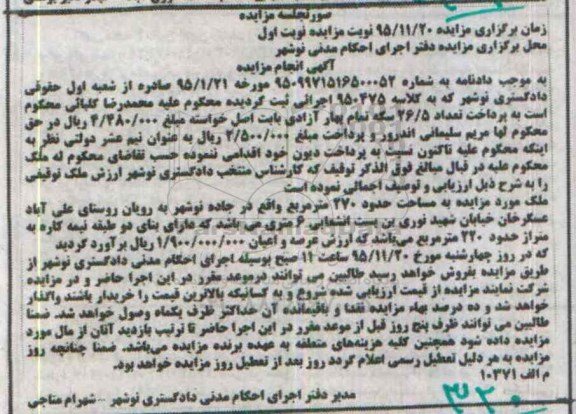 صورتجلسه مزایده
زمان برگزاری مزایده ۹۵/۱۱/۲۰ نوبت مزایده نوبت اول
محل برگزاری مزایده دفتر اجرای احکام مدنی نوشهر
آگهی انجام مزایده
به موجب دادنامه به شماره ۹۵۰۹۹۷۱۵۱۶۵۰۰۰۵۲ مورخه ۹۵/۱/۲۱ صادره از شعبه اول حقوقی
دادگستری نوشهر که به کلاسه ۹۵۰۴۷۵ اجرائی ثبت گردیده محکوم علیه محمدرضا کلبائی محکوم
است به پرداخت تعداد ۲۶/۵ سکه تمام بهار آزادی بابت اصل خواسته مبلغ ۴/۴۸۰/۰۰۰ ریال در حق
محکوم لها مریم سلیمانی اندرور و پرداخت مبلغ ۲/۵۰۰/۰۰۰ ریال به عنوان نیم عشر دولتی نظر به
اینکه محکوم علیه تاکنون نسبت به پرداخت دیون خود اقدامی ننموده حسب تقاضای محکوم له ملک
محکوم علیه در قبال مبالغ فوق الذکر توقیف که کارشناس منتخب دادگستری نوشهر ارزش ملک توقیفی
را به شرح ذیل ارزیابی و توصیف اجمالی نموده است
ملک مورد مزایده به مساحت حدود ۲۷۰ مترمربع واقع در جاده نوشهر به رویان روستای علی آباد
عسگرخان خیابان شهید نوری بن بست انشعابی ۶ متری می باشد که دارای بنای دو طبقه نیمه کاره به
متراژ حدود ۲۲۰ مترمربع می‌باشد که ارزش عرصه و اعیان ۱/۹۰۰/۰۰۰/۰۰۰ ریال برآورد گردید
که در روز چهارشنبه مورخ ۹۵/۱۱/۲۰ ساعت ۱۱ صبح بوسیله اجرای احکام مدنی دادگستری نوشهر از
طریق مزایده بفروش خواهد رسید طالبین می توانند درموعد مقرر در این اجرا حاضر و در مزایده
شرکت نمایند مزایده از قیمت ارزیابی شده شروع و به کسانیکه بالاترین قیمت را خریدار باشند واگذار
خواهد شد و ده درصد بهاء مزایده نقدا و باقیمانده آن حداکثر ظرف یکماه وصول خواهد شد. ضمنا
طالبین می توانند ظرف پنج روز قبل از موعد مقرر در این اجرا حاضر تا ترتیب بازدید آنان از مال مورد
مزایده داده شود همچنین کلیه هزینه‌های متعلقه به عهده برنده مزایده می‌باشد. ضمنا چنانچه روز
مزایده به هر دلیل تعطیل رسمی اعلام گردد روز بعد از تعطیل روز مزایده خواهد بود.
م الف ۱۰۳۷۱
مدیر دفتر اجرای احکام مدنی دادگستری نوشهر - شهرام متاجی